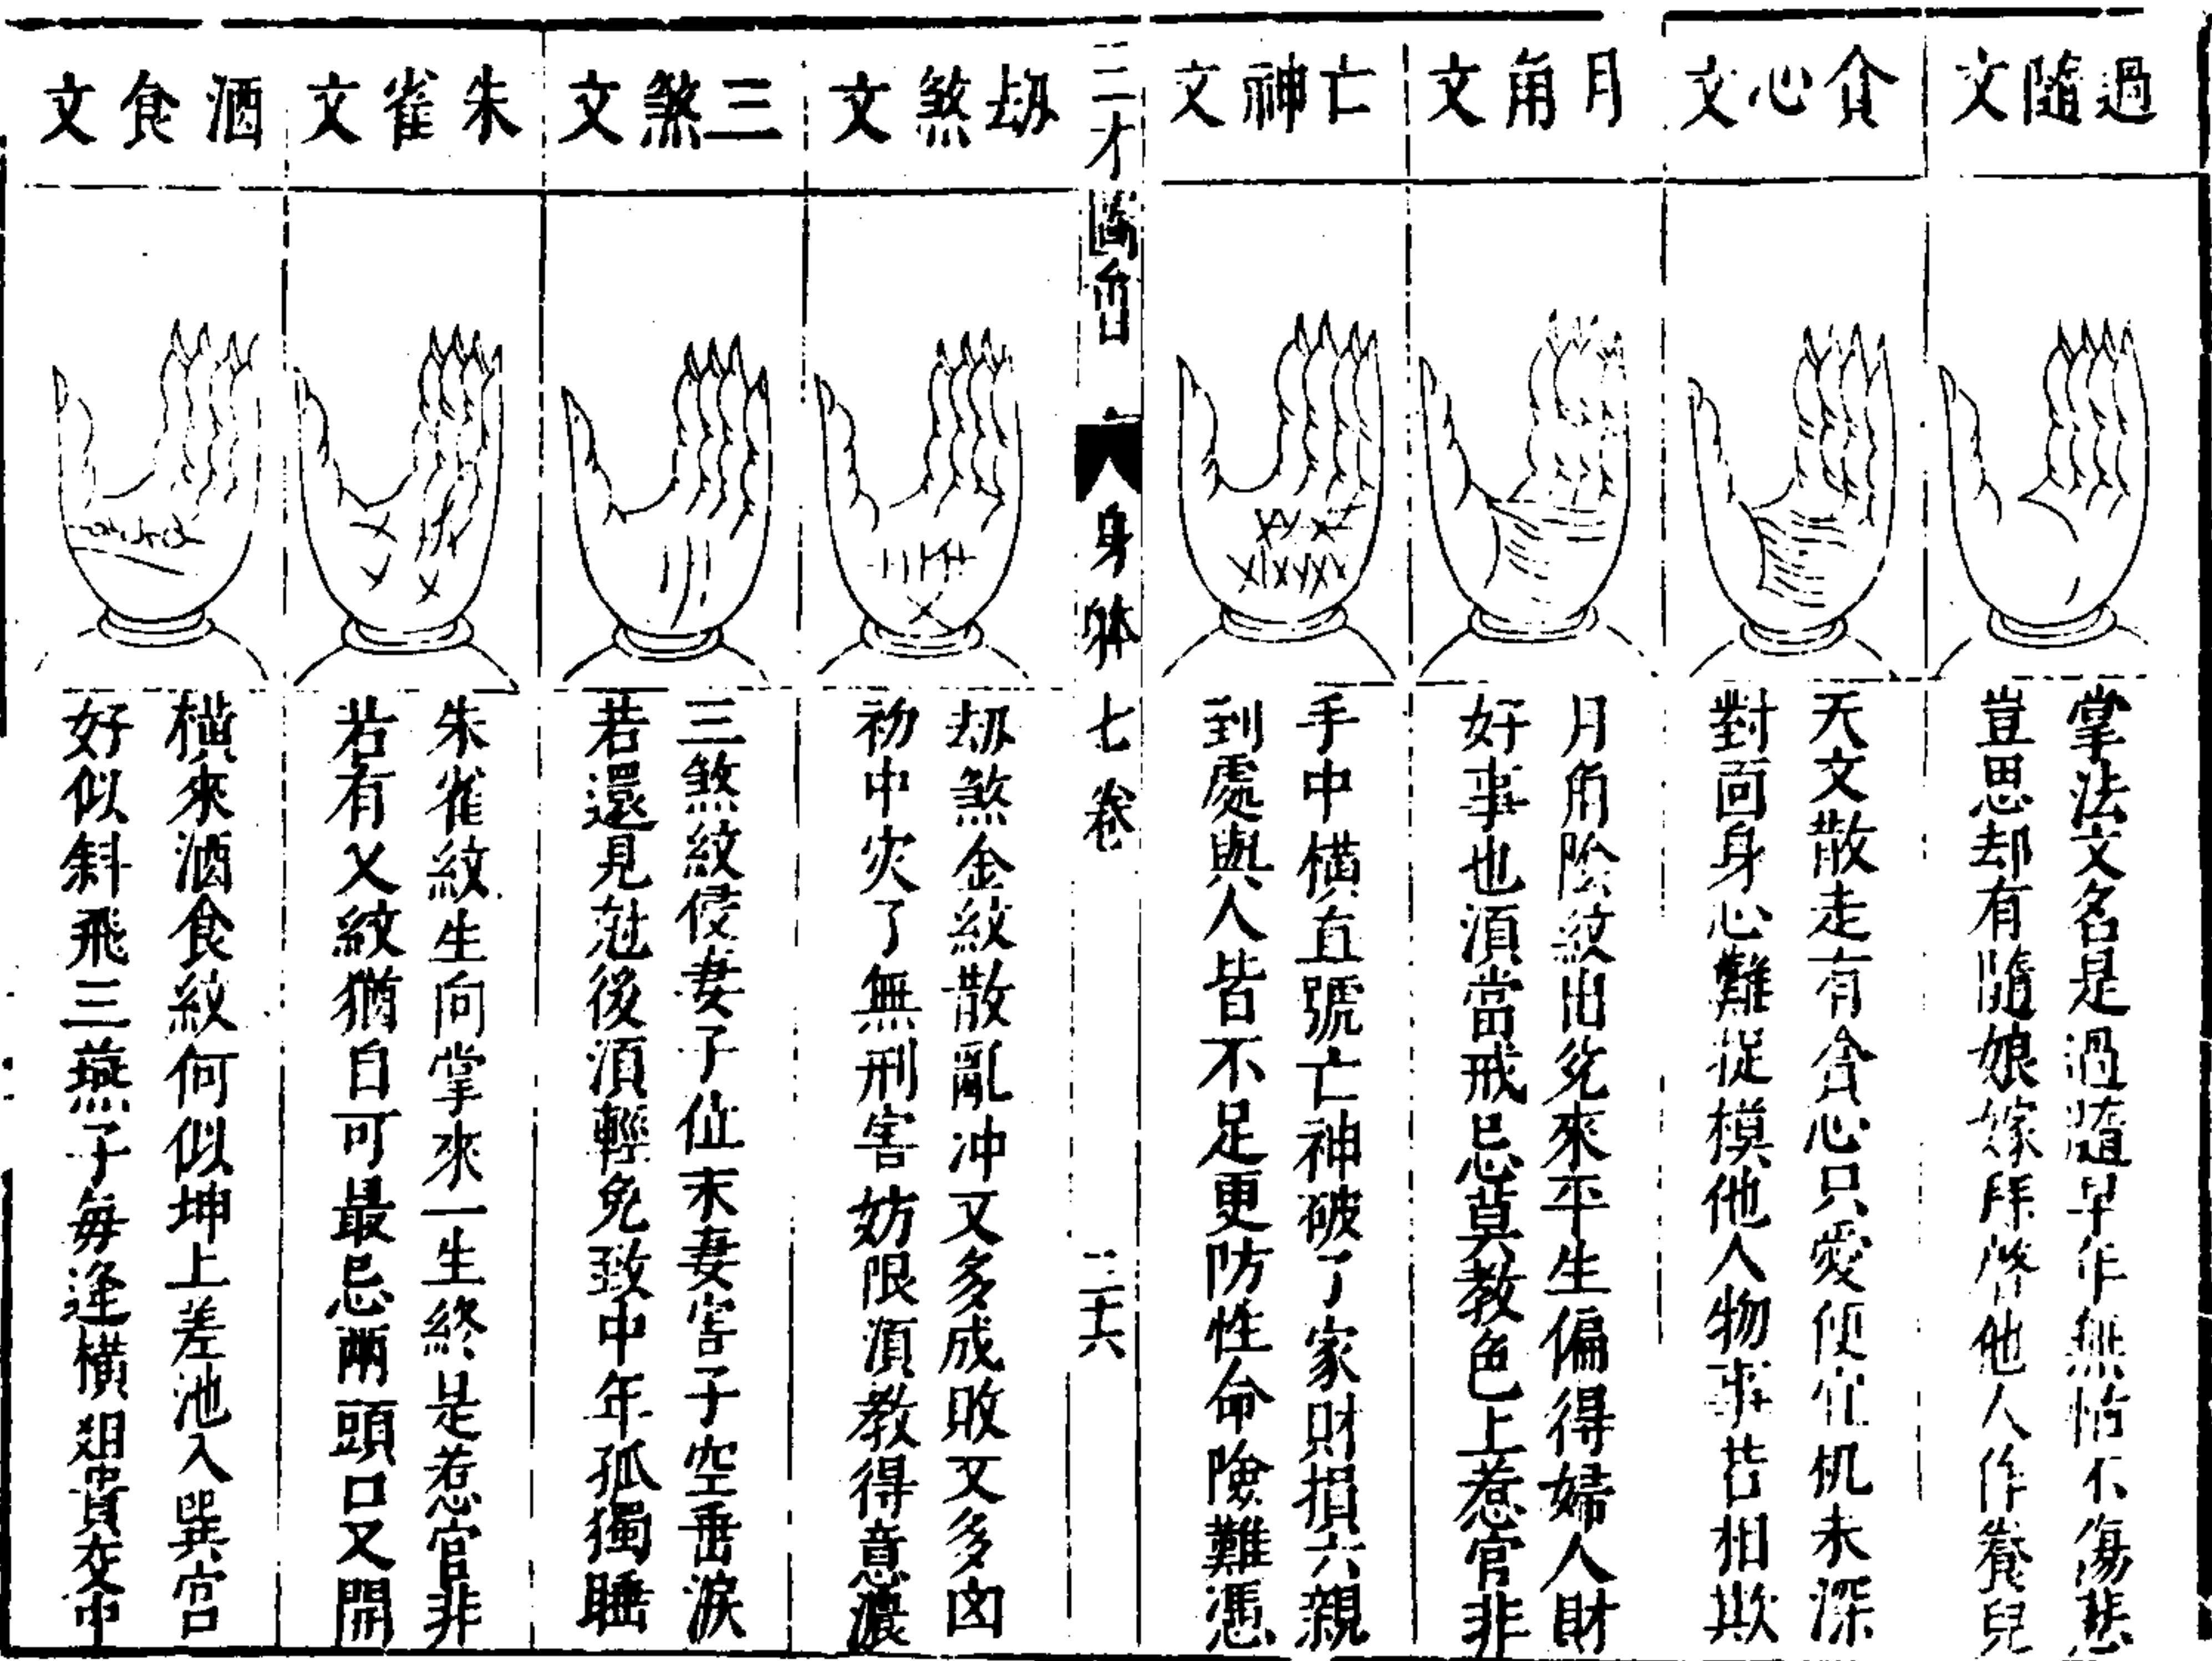 過隨文
掌法文名是過隨早年無怙不傷悲
豈思却有隨娘嫁拜啓他人作養兒
貪心文
天文散走有貪心只愛便宜机未深
對面身心難捉模他人物事苦相欺
月角文
月角陰紋出兊來平生偏得婦人財
好事也湏當戒忌莫教色上惹官非
亡神文
手中橫直號亡神破了家財損六親
到處與人皆不足更防性命險難憑
三才圖會
身體七卷
三十六
刼煞文
刼煞金紋散亂冲又多成敗又多囟
初中灾了無刑害妨限湏教得意濃
三煞文
三煞紋侵妻子位末妻害子空垂淚
若還見尅後湏輕免致中年孤獨睡
朱雀文
朱雀紋生向掌來一生終是惹官非
若有乂紋猶自可最忌兩頭口又開
酒食文
橫來酒食紋何似坤上差池入巽宮
好似斜飛三燕子每逢橫貴交中